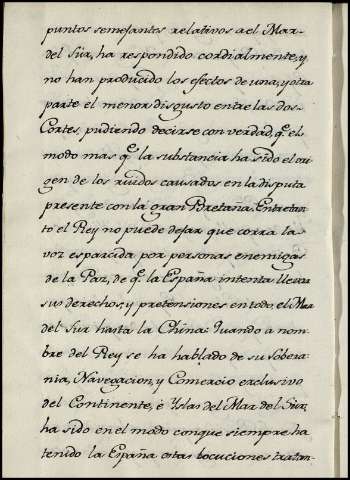 puntos semejantes relativos ael Mar
del Sùr, ha respondido cordialmente, y
no han producido los efectos de una, y otra
parte el menor disgusto entre las dos
Cortes, pudiendo decirse con verdad, q.e el
modo mas q.e la substancia ha sido el ori
gen de los ruidos causados en la disputa
presente con la gran Bretaña. Entretan
to el Rey no puede dejar que corra la
voz esparcida por personas enemigas
de la Paz, de q.e la España intenta llevar
sus derechos, y pretensiones en todo el Mar
del Sur hasta la China. Quando a nom
bre del Rey se ha hablado de su Sobera
nia, Navegacion, y Comercio exclusivo
del Continente, è Yslas del Mar del Sur,
ha sido en el modo con que siempre ha
tenido la España estas locuciones tratan